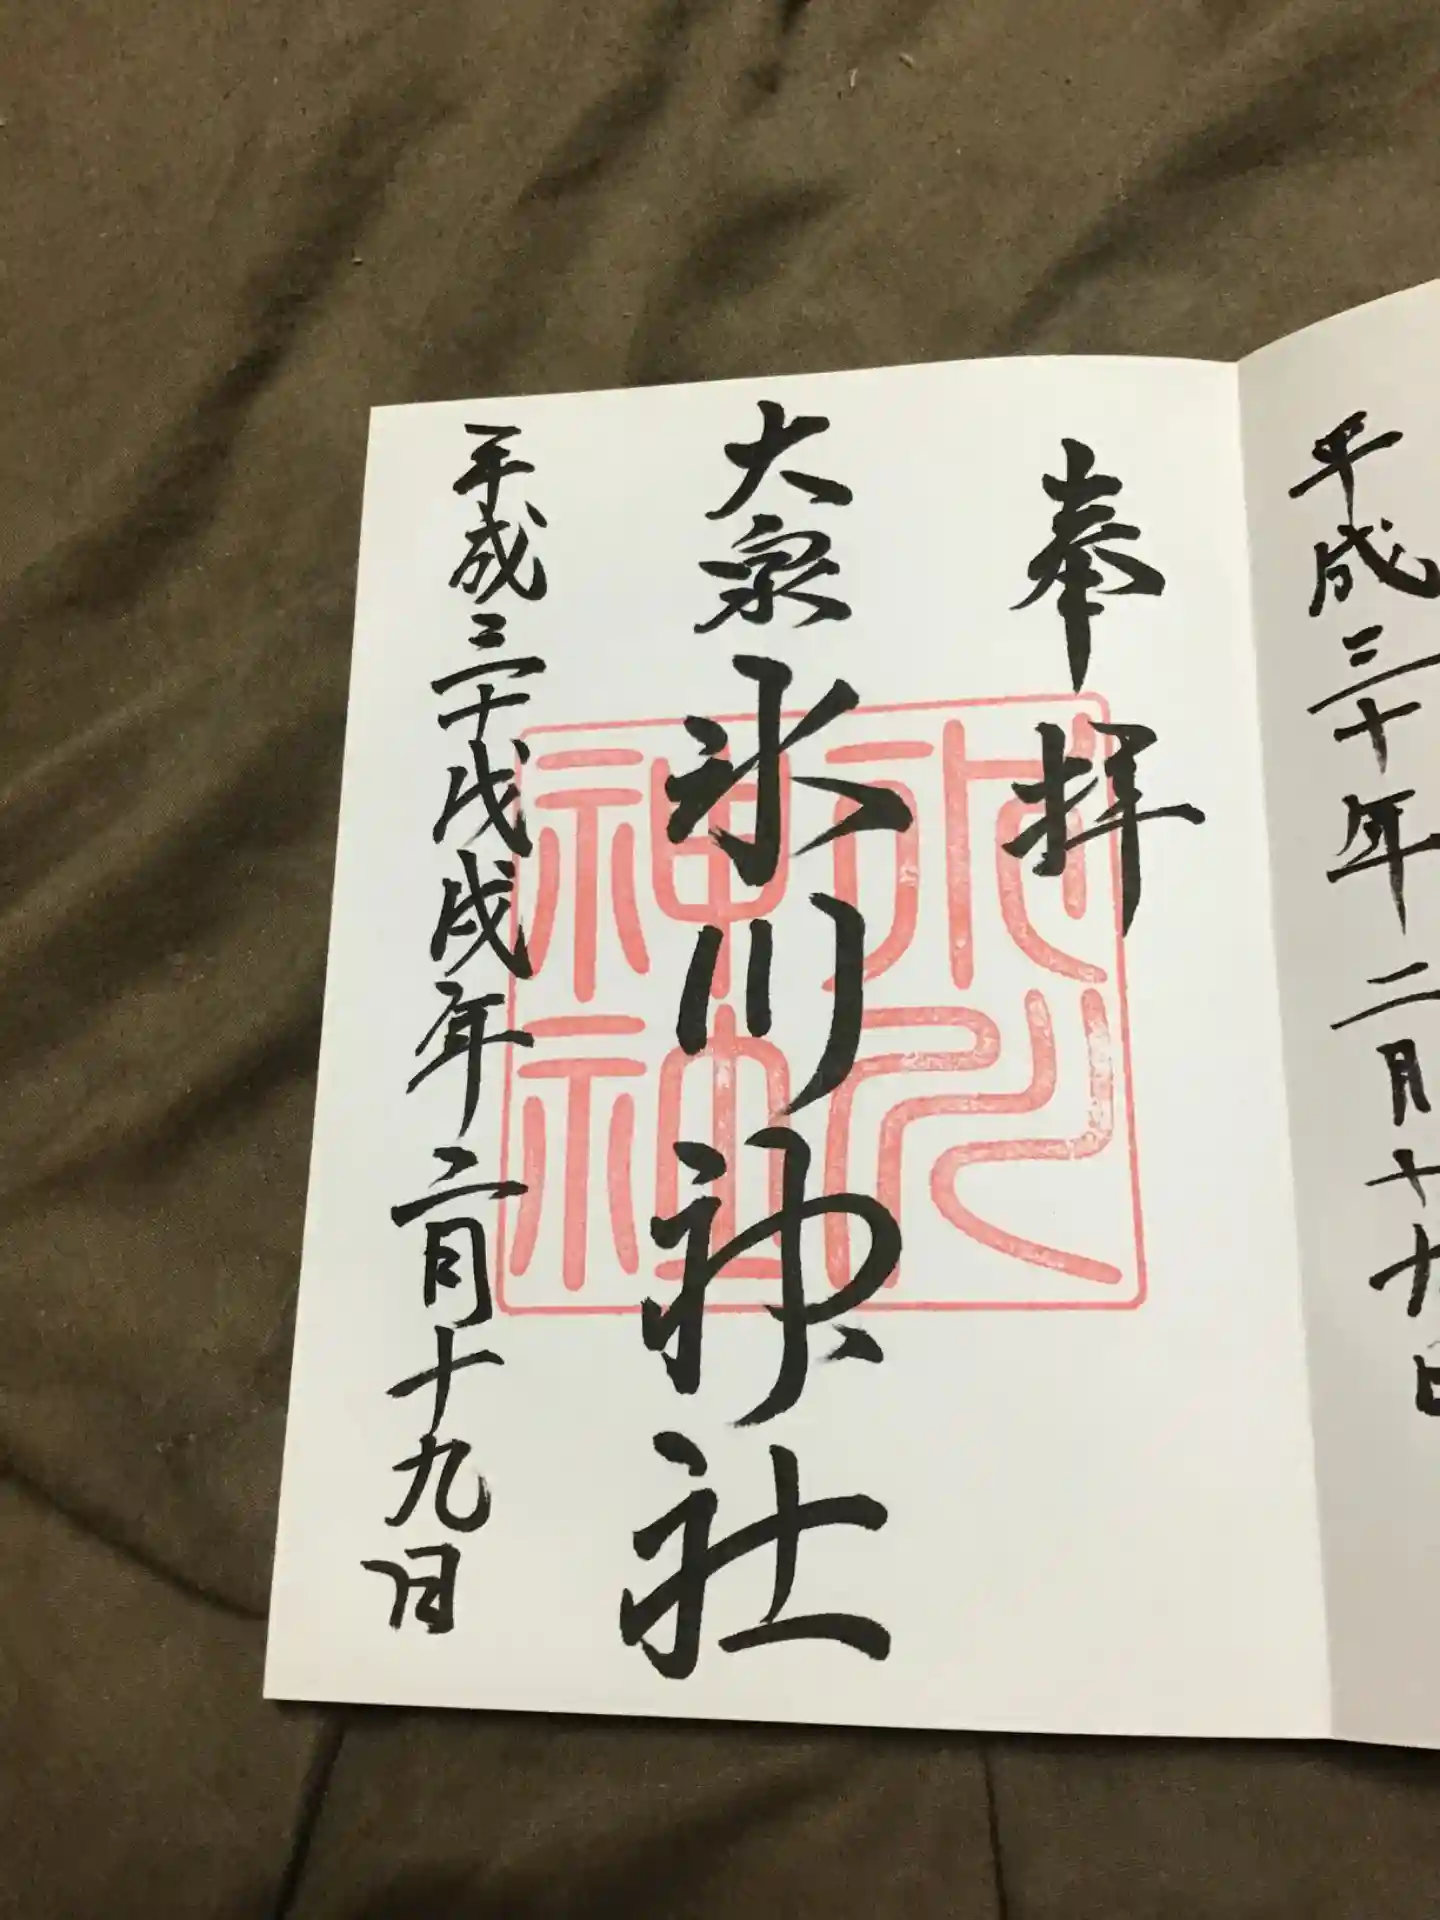 平成三十年二月十九日
奉拝
大泉氷川神社
平成三十戊戌年二月十九日
氷川
神社